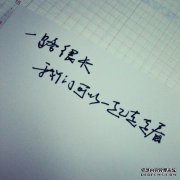 一路很长
我们可以一起走走看